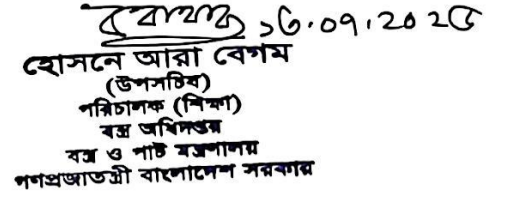 ১৩.০৭.২০২৫
হোসনে আরা বেগম
(উপসচিব)
পরিচালক (শিক্ষা)
বস্ত্র অধিদপ্তর
বস্ত্র ও পাট মন্ত্রণালয়
গণপ্রজাতন্ত্রী বাংলাদেশ সরকার